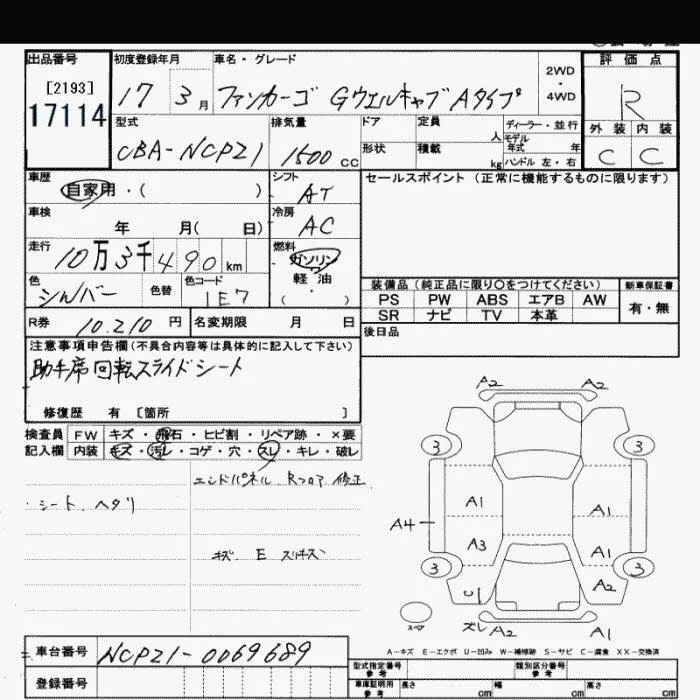 出品番号
[2193]
17114
初度登録年月
17 3月
車名・グレード
ファンカーゴ Gウエルキャブ Aタイプ
2WD
・
4WD
評価点
R
外装 内装
C C
型式
CBA-NCPZ1
排気量
1500 CC
ドア
形状
定員
人
積載
kg
ディーラー・並行
モデル
年式 年
ハンドル 左・右
車歴
自家用・( )
シフト
AT
セールスポイント (正常に機能するものに限ります)
車検
年 月( 日)
冷房
AC
走行
10万3千490km
燃料
ガソリン
軽油
・
( )
色
シルバー
色替
色コード
1E7
装備品 (純正品に限り〇をつけてください)
新車保証書
PS PW ABS エアB AW
SR ナビ TV 本革
有・無
R券 10.210円
名変期限 月 日
後日品
注意事項申告欄(不具合内容等は具体的に記入して下さい)
助手席回転スライドシート
修復歴 有 [箇所 ]
検査員
記入欄
FW キズ・飛石・ヒビ割・リペア跡・×要
内装 キズ・汚レ・コゲ・穴・スレ・キレ・破レ
エンドパネル Rフロア 修正
シート ヘタリ
キズ E スリキズ
A2 A2
3 3
A1 A1
A4
A3 A1
3 3
A2
U1
ズレ A2 A1
A-キズ E-エクボ U-凹み W-補修跡 S-サビ C-腐食 XX-交換済
車台番号 NCPZ1-0069689
登録番号
型式指定番号
参考
類別区分番号
参考
車庫証明用
参考
長さ cm 幅 cm 高さ cm